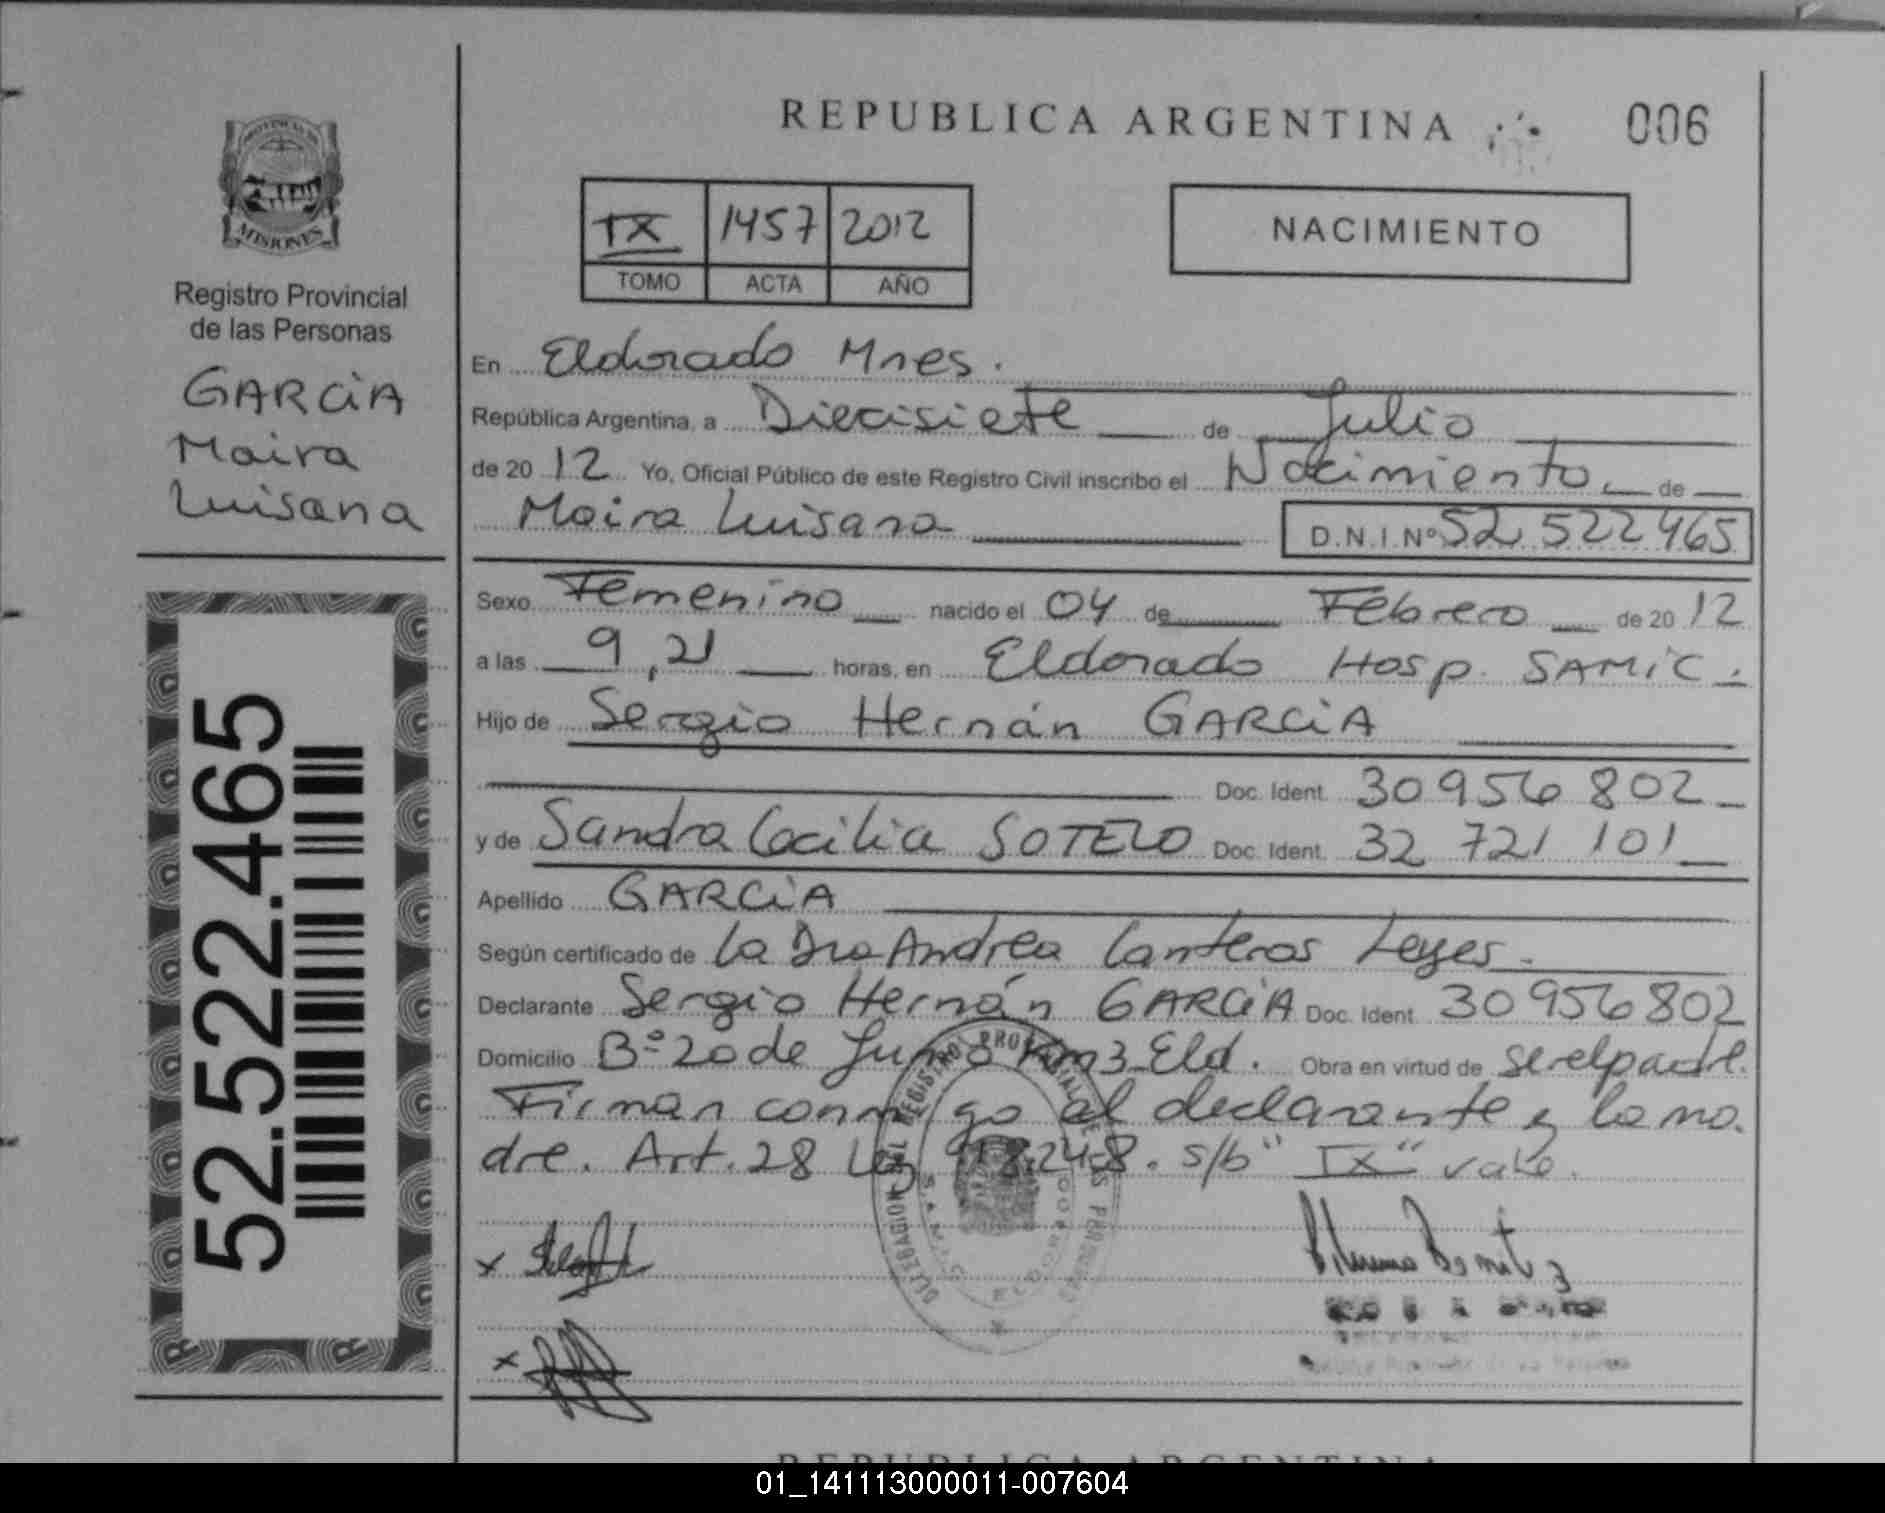 REPUBLICA ARGENTINA
006
PROVINCIA DE
MISIONES
Registro Provincial
de las Personas
GARCIA
Maira
Luisana
52.522.465
IX 1457 2012
TOMO ACTA AÑO
NACIMIENTO
En Eldorado Mnes.
República Argentina, a Diecisiete de Julio
de 20 12 Yo, Oficial Público de este Registro Civil inscribo el Nacimiento de
Maira Luisana D.N.I.Nº 52 522 465
Sexo Femenino nacido el 04 de Febrero de 20 12
a las 9,21 horas, en Eldorado Hosp. SAMIC.
Hijo de Sergio Hernán GARCIA
Doc. Ident. 30 956 802
y de Sandra Cecilia SOTELO Doc. Ident. 32 721 101
Apellido GARCIA
Según certificado de La Dra Andrea Canteros Leyes.
Declarante Sergio Hernán GARCIA Doc. Ident. 30 956 802
Domicilio Bº 20 de Junio Km3 Eld. Obra en virtud de ser el padre.
Firman conmigo el declarante y la ma.
dre. Art. 28 Ley 18248. s/b "IX" vale.
DELEGACION DEL REGISTRO PROVINCIAL DE LAS PERSONAS
S.A.M.I.C. ELDORADO
x
x
REPUBLICA ARGENTINA
01_141113000011-007604